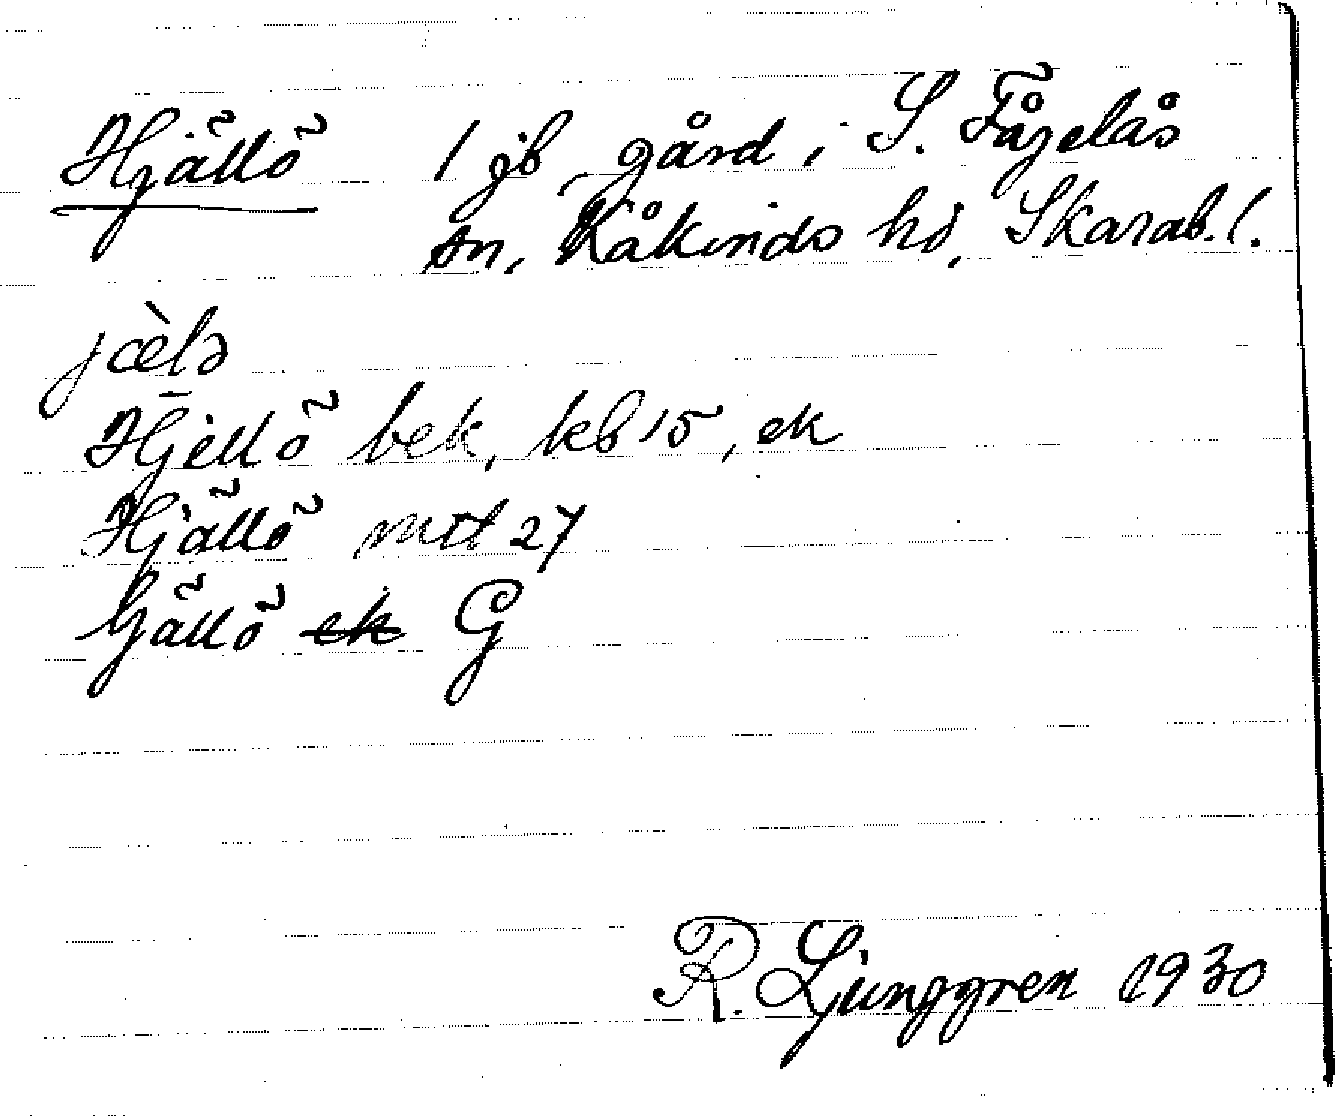 Hjällö 1 jb gård i S. Fågelås
sn, Kåkinds hd, Skarab. l.
jæ̀lə
Hjellö bek, kb 15, ek
Hjällö mtl 27
Gällö ek G
R. Ljunggren 1930